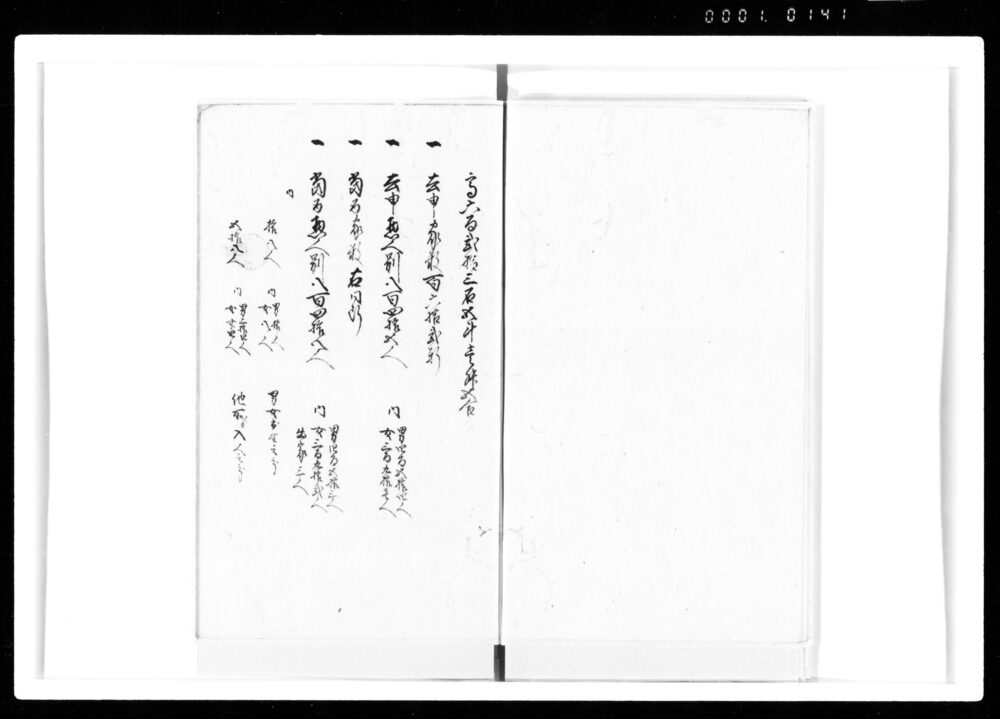 0001. 0141
高六百弐拾三石五斗壱升五合
一 去申家数百六拾弐軒
一 去申惣人別八百四拾五人
内 男四百五拾四人
女三百九拾壱人
一 当酉家数右同断
一 当酉惣人別八百四拾八人
内 男四百五拾三人
女三百九拾弐人
出家三人
内
拾八人
内 男拾人
女八人
男女出生之分
五拾八人
内 男三拾四人
女廿四人
他所より入人之分